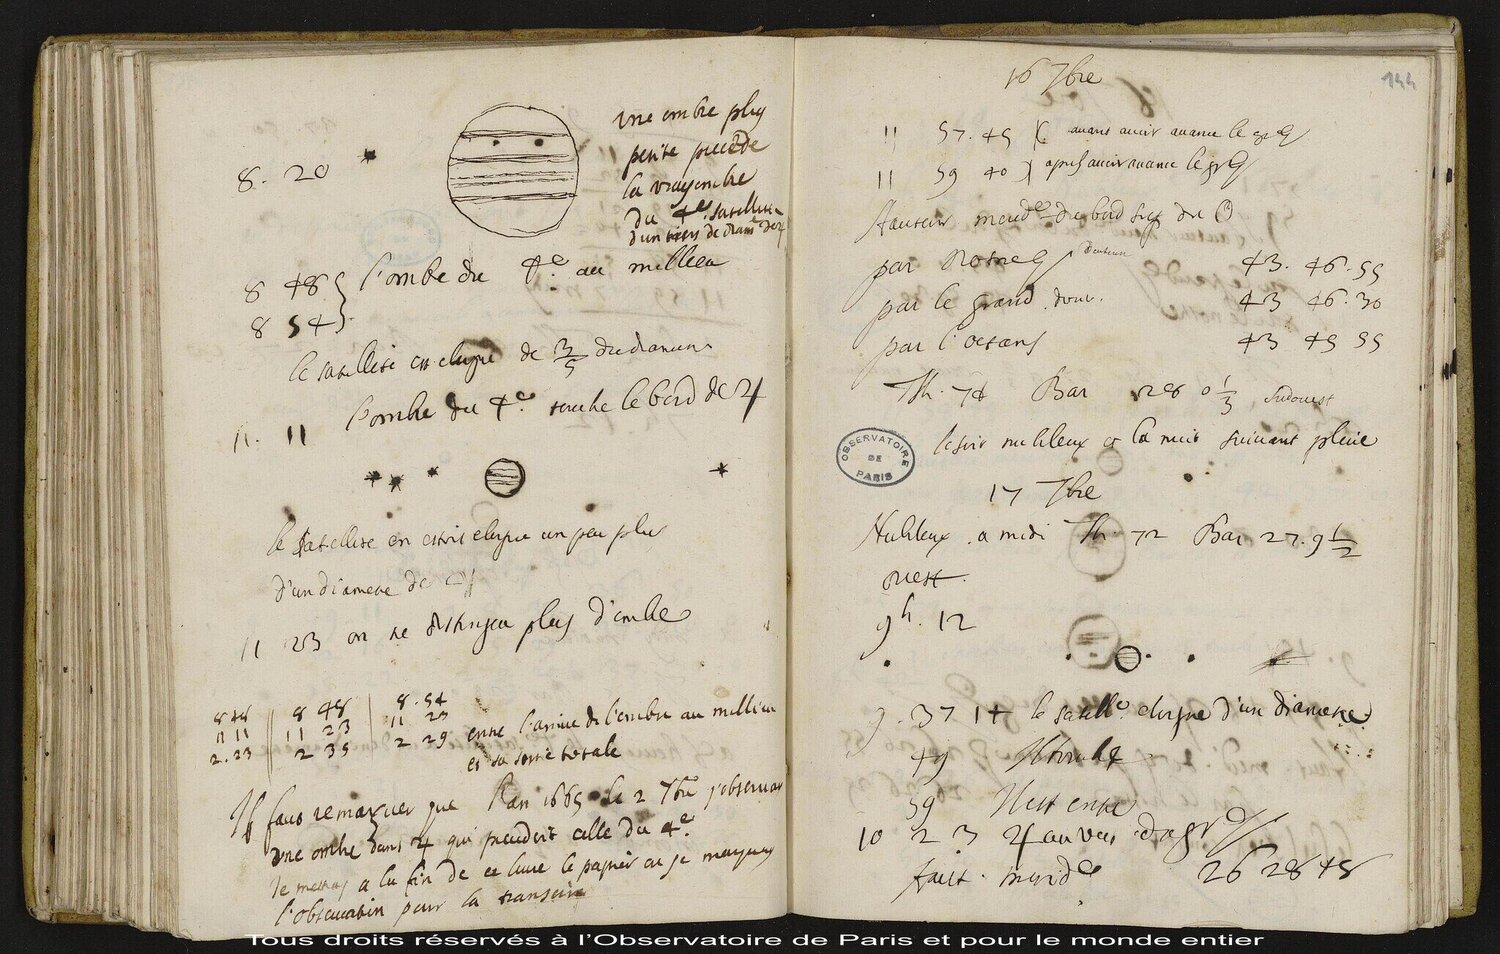 8. 20
une ombre plus
petite precede
la vraye ombre
du 4e. satellite
d'un tiers de diam de ♃
8 48
8 54
l'ombre du 4e. au milieu
le satellite est eloigné de 3/5 du diametre
11. 11 l'ombre du 4e. touche le bord de ♃
le satellite en estoit eloigné un peu plus
d'un diametre de ♃
11 23 on ne distingua plus d'ombre
8 48 | 8 48 | 8. 54
11 11 | 11 23 | 11 23
2. 23 | 2 35 | 2 29
entre l'arrivee de l'ombre au milieu
et sa sortie totale
Il faut remarquer que l'an 1665 le 2 7bre j'observay
une ombre dans ♃ qui precedoit celle du 4e.
Je mettray a la fin de ce livre le papier ou je marquay
l'observation pour la
144
16 7bre
11 57. 45 avant avoir avancé le
11 59 40 apres avoir avancé le
Hauteur merid du bord sup du ☉
par nostre 43. 46. 55
par le grand 43 46. 30
par l'octans 43 45 55
Th. 74 Bar 28 0 1/3 sudouest
OBSERVATOIRE DE PARIS
le soir nubileux et la nuit suivant pluie
17 7bre
Nubileux a midi Th. 72 Bar 27. 9 1/2
ouest.
9h. 12
9. 37 14 le satell. eloigné d'un diametre
49 Il touche
59 Il est entré
10 2 3 ♃ au vert
haut. merid 26 28 48
Tous droits réservés à l'Observatoire de Paris et pour le monde entier